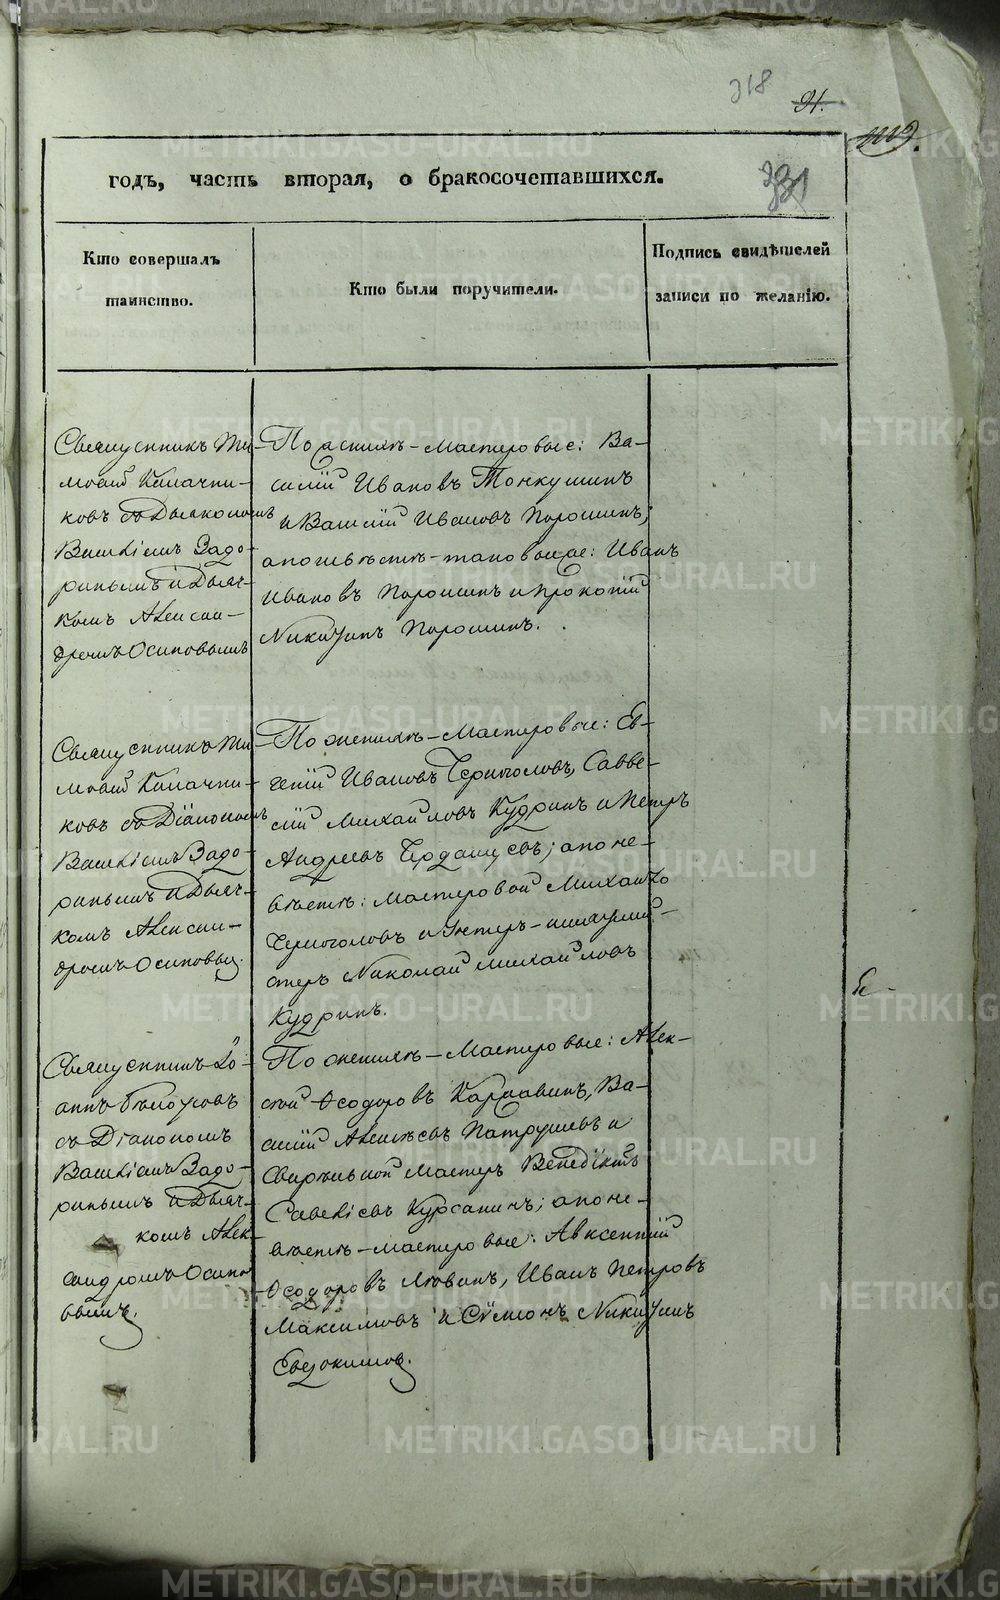 318
21.
годъ, часть вторая, о бракосочетавшихся.
331
Кто совершалъ
таинство.
Кто были поручители.
Подпись свидѣтелей
записи по желанію.
Священникъ Ти-
мофей Калачни-
ковъ съ Дьякономъ
Василіемъ Задо-
ринымъ и Дьяч-
комъ Алексан-
дромъ Осиповымъ
По женихѣ - мастеровые: Ва-
силій Ивановъ Тонкушинъ
и Василій Ивановъ Порошинъ;
а по невѣстѣ - таковые же: Иванъ
Ивановъ Порошинъ и Прокопій
Никитинъ Порошинъ.
Священникъ Ти-
мофей Калачни-
ковъ съ Діакономъ
Василіемъ Задо-
ринымъ и Дьяч-
комъ Алексан-
дромъ Осиповы.
По женихѣ - Мастеровые: Ев-
геній Ивановъ Черноголовъ, Савве-
лій Михайловъ Кудринъ и Петръ
Андреевъ; а по не-
вѣстѣ: мастеровой Михайло
Черноголовъ и Унтеръ-шихтмей-
стеръ Николай Михайловъ
Кудринъ.
Священникъ Іо-
аннъ Бѣлоусовъ
съ Діакономъ
Василіемъ Задо-
ринымъ и Дьяч-
комъ Алек-
сандромъ Осипо-
вымъ.
По женихѣ - Мастеровые: Алек-
сѣй Ѳеодоровъ Кармавинъ, Ва-
силій Алексѣевъ Патрушевъ и
мастеръ Венедиктъ
Савеліевъ Курсанинъ; а по не-
вѣстѣ - мастеровые: Авксентій
Ѳеодоровъ, Иванъ Петровъ
Максимовъ и Сѵмеонъ Никитинъ
Евдокимовъ.
METRIKI.GASO-URAL.RU